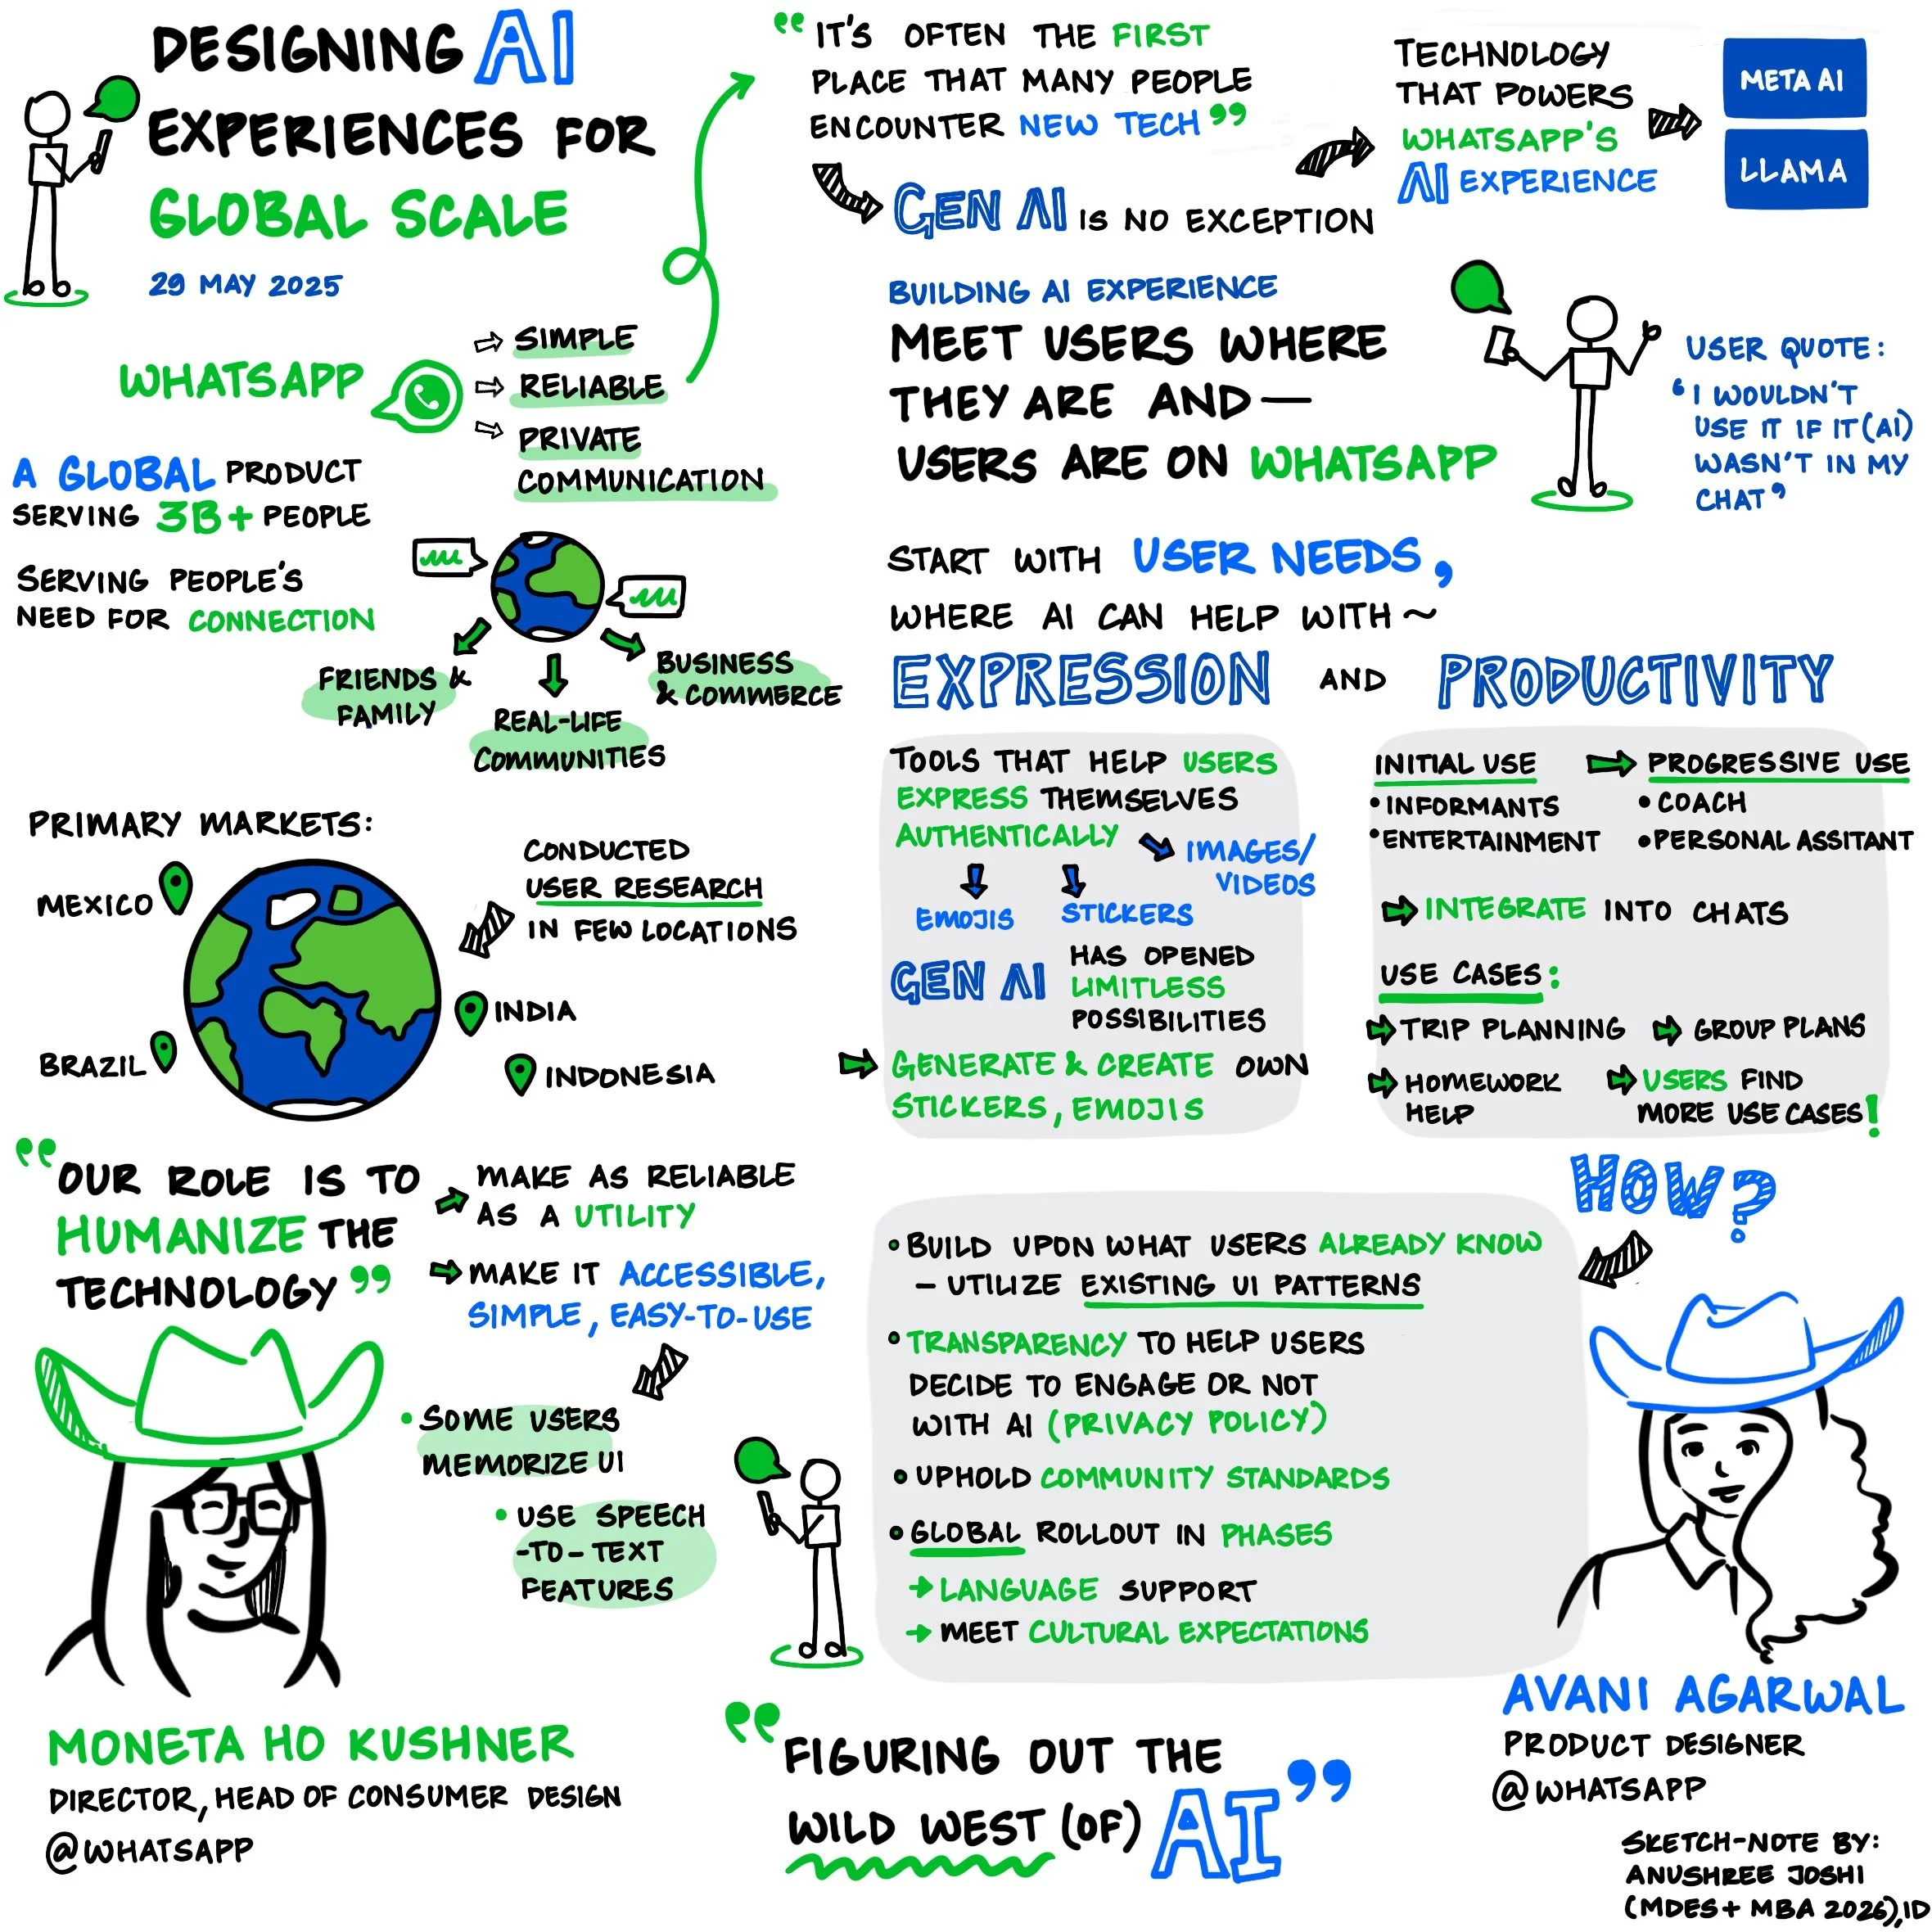 DESIGNING AI
EXPERIENCES FOR
GLOBAL SCALE
29 MAY 2025
WHATSAPP
SIMPLE
RELIABLE
PRIVATE
COMMUNICATION
A GLOBAL PRODUCT
SERVING 3B+ PEOPLE
SERVING PEOPLE'S
NEED FOR CONNECTION
FRIENDS &
FAMILY
REAL-LIFE
COMMUNITIES
BUSINESS
& COMMERCE
PRIMARY MARKETS:
MEXICO
BRAZIL
INDIA
INDONESIA
CONDUCTED
USER RESEARCH
IN FEW LOCATIONS
"OUR ROLE IS TO
HUMANIZE THE
TECHNOLOGY"
MAKE AS RELIABLE
AS A UTILITY
MAKE IT ACCESSIBLE,
SIMPLE, EASY-TO-USE
• SOME USERS
MEMORIZE UI
• USE SPEECH
-TO-TEXT
FEATURES
MONETA HO KUSHNER
DIRECTOR, HEAD OF CONSUMER DESIGN
@WHATSAPP
"IT'S OFTEN THE FIRST
PLACE THAT MANY PEOPLE
ENCOUNTER NEW TECH"
GEN AI IS NO EXCEPTION
TECHNOLOGY
THAT POWERS
WHATSAPP'S
AI EXPERIENCE
META AI
LLAMA
BUILDING AI EXPERIENCE
MEET USERS WHERE
THEY ARE AND —
USERS ARE ON WHATSAPP
USER QUOTE:
'I WOULDN'T
USE IT IF IT (AI)
WASN'T IN MY
CHAT'
START WITH USER NEEDS,
WHERE AI CAN HELP WITH ~
EXPRESSION AND PRODUCTIVITY
TOOLS THAT HELP USERS
EXPRESS THEMSELVES
AUTHENTICALLY
EMOJIS
STICKERS
IMAGES/
VIDEOS
GEN AI HAS OPENED
LIMITLESS
POSSIBILITIES
GENERATE & CREATE OWN
STICKERS, EMOJIS
INITIAL USE
• INFORMANTS
• ENTERTAINMENT
PROGRESSIVE USE
• COACH
• PERSONAL ASSITANT
INTEGRATE INTO CHATS
USE CASES:
TRIP PLANNING
GROUP PLANS
HOMEWORK
HELP
USERS FIND
MORE USE CASES!
HOW?
• BUILD UPON WHAT USERS ALREADY KNOW
– UTILIZE EXISTING UI PATTERNS
• TRANSPARENCY TO HELP USERS
DECIDE TO ENGAGE OR NOT
WITH AI (PRIVACY POLICY)
• UPHOLD COMMUNITY STANDARDS
• GLOBAL ROLLOUT IN PHASES
→ LANGUAGE SUPPORT
→ MEET CULTURAL EXPECTATIONS
"FIGURING OUT THE
WILD WEST (OF) AI"
AVANI AGARWAL
PRODUCT DESIGNER
@WHATSAPP
SKETCH-NOTE BY:
ANUSHREE JOSHI
(MDES+ MBA 2026), ID